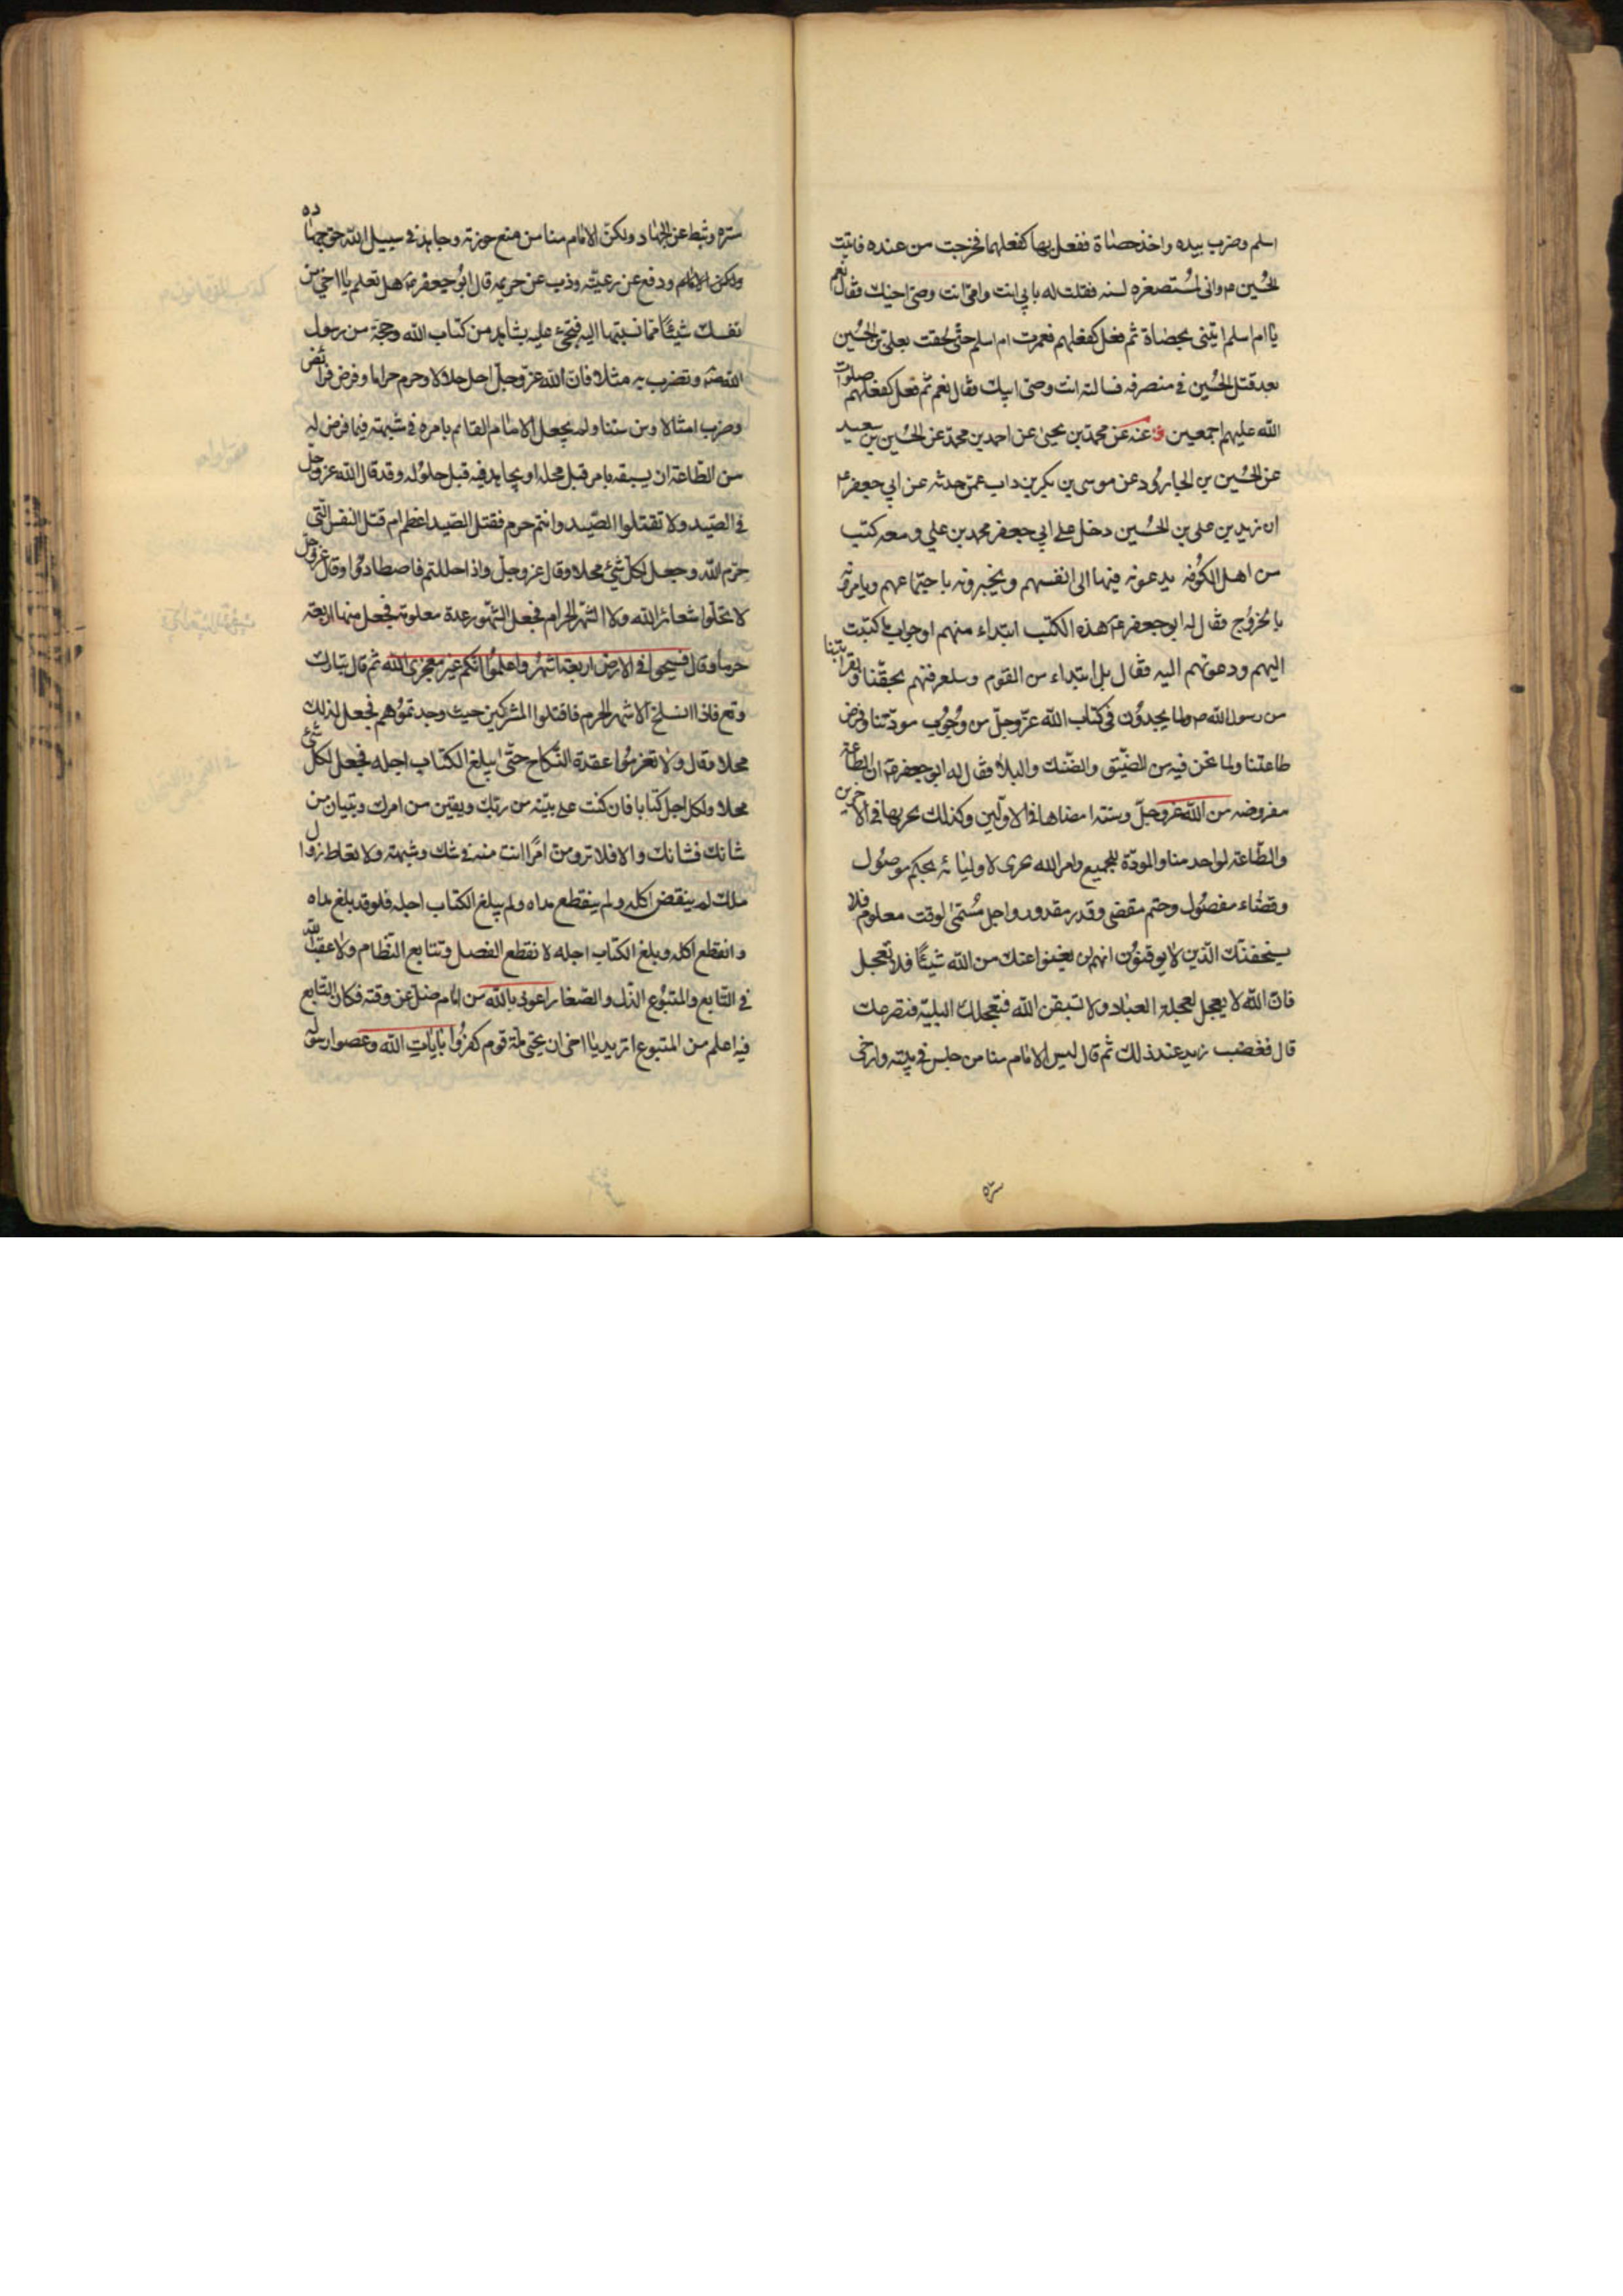 اسلم وضرب بيده واخذ حصاة ففعل بها كفعلهما فخرجت من عنده فاتيت
الحسين م وانى لمستصغره لسنه فقلت له بابي انت وامى انت وصى اخيك فقال نعم
يا ام اسلم ايتنى بحصاة ثم فعل كفعلهم فعمرت ام اسلم حتى لحقت بعلى بن الحسين
بعد قتل الحسين فى منصرفه فسالته انت وصى ابيك فقال نعم ثم فعل كفعلهم صلوات
الله عليهم اجمعين عنه عن محمد بن يحيى عن احمد بن محمد عن الحسين بن سعيد
عن الحسين بن الجارود عن موسى بن بكر بن داب عمن حدثه عن ابي جعفر ع
ان زيد بن على بن الحسين دخل على ابي جعفر محمد بن علي ومعه كتب
من اهل الكوفه يدعونه فيها الى انفسهم ويخبرونه باجتماعهم ويامرونه
بالخروج فقال له ابو جعفر ع هذه الكتب ابتداء منهم او جواب ما كتبت
اليهم ودعوتهم اليه فقال بل ابتداء من القوم لمعرفتهم بحقنا وبقرابتنا
من رسول الله ص ولما يجدون فى كتاب الله عز وجل من وجوب مودتنا وفرض
طاعتنا ولما نحن فيه من الضيق والضنك والبلاء فقال له ابو جعفر ع ان الطاعة
مفروضه من الله عز وجل وسنته امضاها فى الاولين وكذلك يجريها فى الاخرين
والطاعة لواحد منا والمودة للجميع وامر الله يجرى لاوليائه بحكم موصول
وقضاء مفصول وحتم مقضى وقدر مقدور واجل مسمى لوقت معلوم فلا
يستخفنك الذين لا يوقنون انهم لن يغنوا عنك من الله شيئا فلا تعجل
فان الله لا يعجل لعجلة العباد ولا تسبقن الله فتعجلك البلية فتصرعك
قال فغضب زيد عند ذلك ثم قال ليس الامام منا من جلس فى بيته وارخى
ستره
ستره وثبط عن الجهاد ولكن الامام منا من منع حوزته وجاهد فى سبيل الله حق جهاده
ودفع عن رعيته وذب عن حريمه قال ابو جعفر ع هل تعلم يا اخى من
نفسك شيئا مما نسبتها اليه فتجىء عليه بشاهد من كتاب الله وحجة من رسول
الله ص وتضرب به مثلا فان الله عز وجل احل حلالا وحرم حراما وفرض فرائض
وضرب امثالا وسن سننا ولم يجعل الامام القائم بامره فى شبهة فيما فرض له
من الطاعة ان يسبقه بامر قبل محله او يجاهد فيه قبل حلوله وقد قال الله عز وجل
فى الصيد ولا تقتلوا الصيد وانتم حرم فقتل الصيد اعظم ام قتل النفس التى
حرم الله وجعل لكل شئ محلا وقال عز وجل واذا حللتم فاصطادوا وقال عز وجل
لا تحلوا شعائر الله ولا الشهر الحرام فجعل الشهور عدة معلومة فجعل منها اربعة
حرما وقال فسيحوا فى الارض اربعة اشهر واعلموا انكم غير معجزى الله ثم قال تبارك
وتع فاذا انسلخ الاشهر الحرم فاقتلوا المشركين حيث وجدتموهم فجعل لذلك
محلا وقال ولا تعزموا عقدة النكاح حتى يبلغ الكتاب اجله فجعل لكل شئ
محلا ولكل اجل كتابا فان كنت على بينه من ربك ويقين من امرك وتبيان من
شانك فشانك والا فلا ترومن امرا انت منه فى شك وشبهة ولا تعاط زوال
ملك لم ينقض اكله ولم ينقطع مداه ولم يبلغ الكتاب اجله فلو قد بلغ مداه
وانقطع اكله وبلغ الكتاب اجله لانقطع الفصل وتتابع النظام ولاعقب الله
فى التابع والمتبوع الذل والصغار اعوذ بالله من امام ضل عن وقته فكان التابع
فيه اعلم من المتبوع اتريد يا اخى ان تحيى ملة قوم كفروا بايات الله وعصوا رسوله